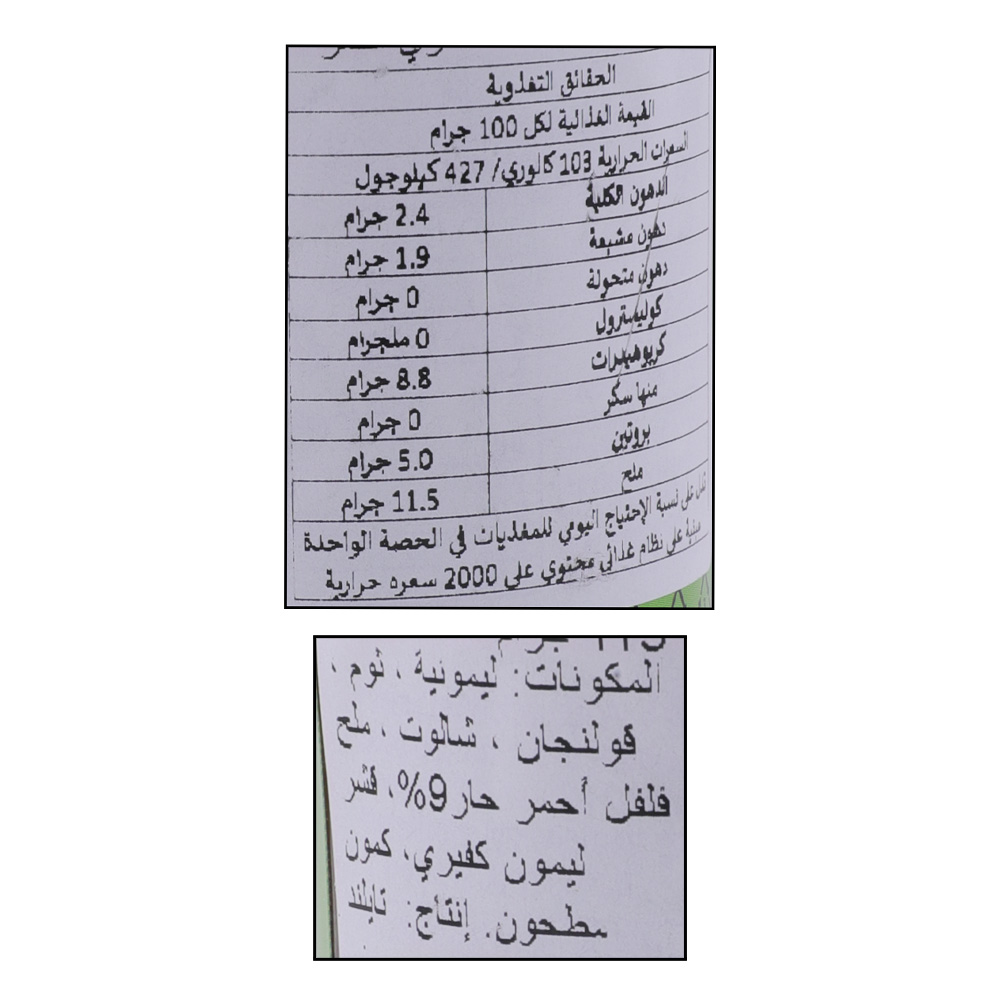 الحقائق التغذوية
القيمة الغذائية لكل 100 جرام
السعرات الحرارية 103 كالوري/ 427 كيلوجول
الدهون الكلية 2.4 جرام
دهون مشبعة 1.9 جرام
دهون متحولة 0 جرام
كوليسترول 0 ملجرام
كربوهيدرات 8.8 جرام
منها سكر 0 جرام
بروتين 5.0 جرام
ملح 11.5 جرام
على نسبة الإحتياج اليومي للمغذيات في الحصة الواحدة
مبنية على نظام غذائي محتوي على 2000 سعره حرارية
المكونات: ليمونية ، ثوم ،
قولنجان ، شالوت ، ملح
فلفل أحمر حار 9%، قشر
ليمون كفيري، كمون
مطحون. إنتاج: تايلند